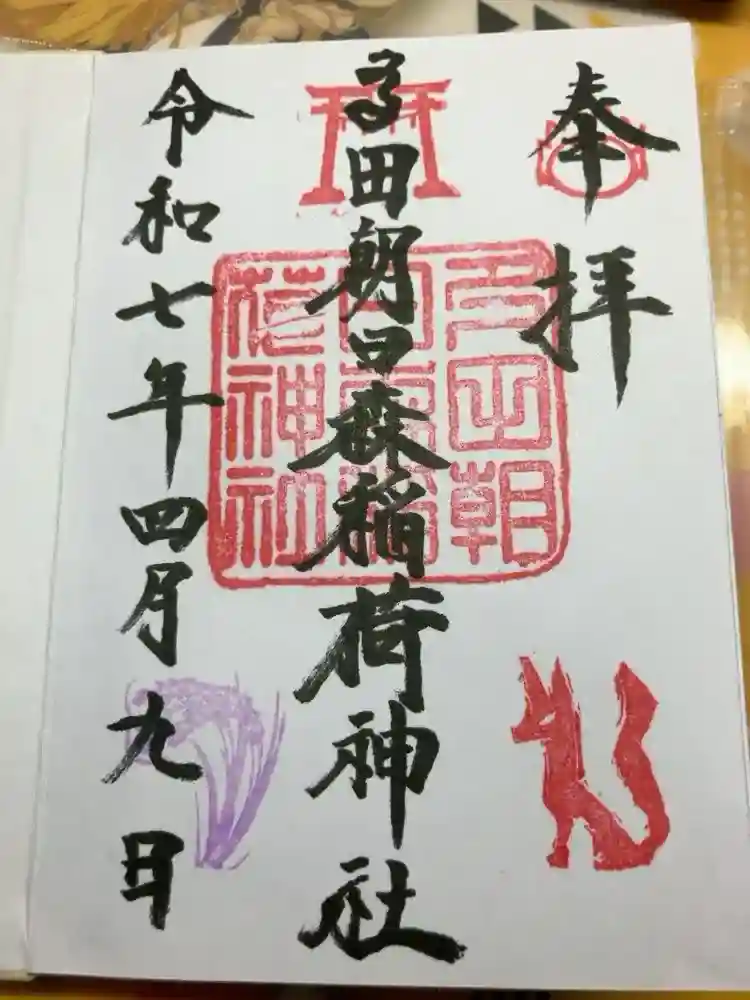 奉拝
多田朝日森稲荷神社
令和七年四月九日
多田朝
日森稲
荷神社